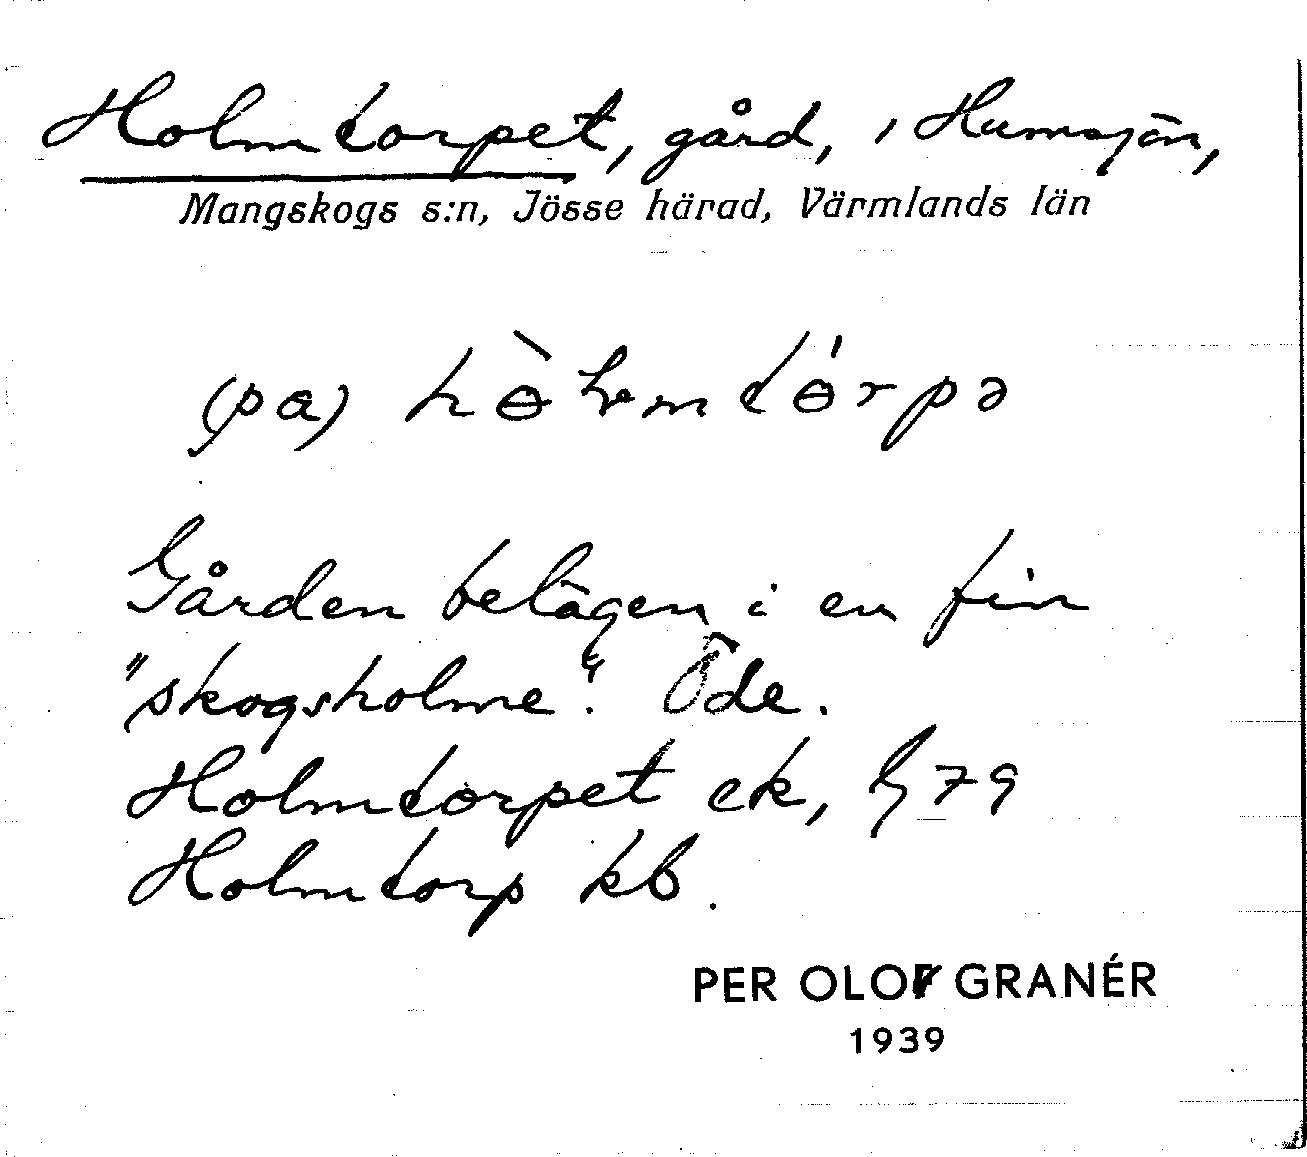 Holmtorpet, gård, i Humsjön,
Mangskogs s:n, Jösse härad, Värmlands län
(pa)
Gården belägen i en fin
"skogsholme". Öde.
Holmtorpet ek, 79
Holmtorp kb.
PER OLOF GRANÉR
1939